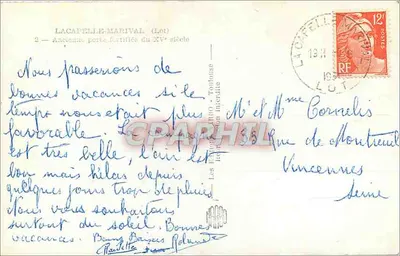 LACAPELLE-MARIVAL (Lot)
2 - Ancienne porte fortifiée du XVe siècle
Nous passerions de
bonnes vacances si le
temps nous était plus
favorable. La
est très belle, l'air est
bon mais hélas depuis
quelques jours trop de pluie
Nous vous souhaitons
surtout du soleil. Bonnes
vacances. Bons Baisers
Paulette Rolande
12F
POSTES
RF
LACAPELLE
LOT
Mr et Mme Cornelis
rue de Montreuil
Vincennes
Seine
CARPHIL.COM